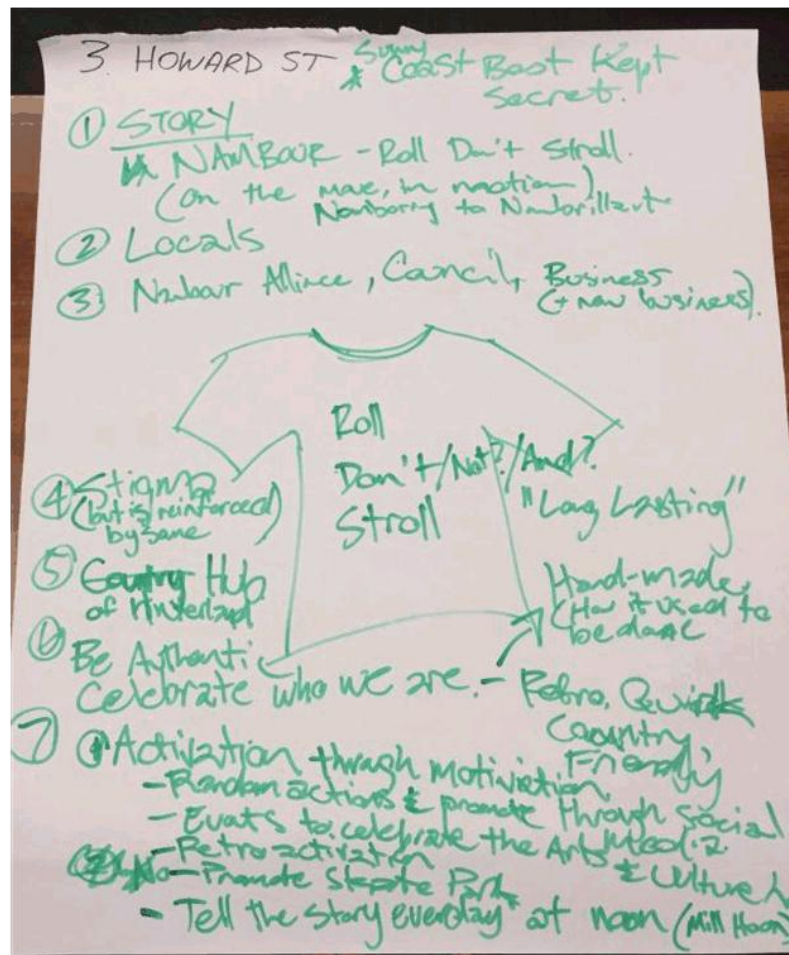 3. HOWARD ST * Sunny Coast Best Kept
Secret.
① STORY
NAMBOUR - Roll Don't Stroll.
(on the move, in motion)
Namboring to Nambrilliant
② Locals
③ Nambour Allince, Council, Business
(+ new business).
Roll
Don't/Not?/And?
Stroll
④ Stigma
(but is reinforced)
by some
"Long Lasting"
⑤ Hub
of Hinterland
Hand-made,
(How it used to
be done
⑥ Be Authentic
Celebrate who we are. - Retro, Quirk
Country
Friendly
⑦ Activation through motiviation
- Random actions & promote through social
Media.
- Events to celebrate the Arts & Culture
- Retro activation
- Promote Skate Park
- Tell the story everyday at noon (Mill Horn)